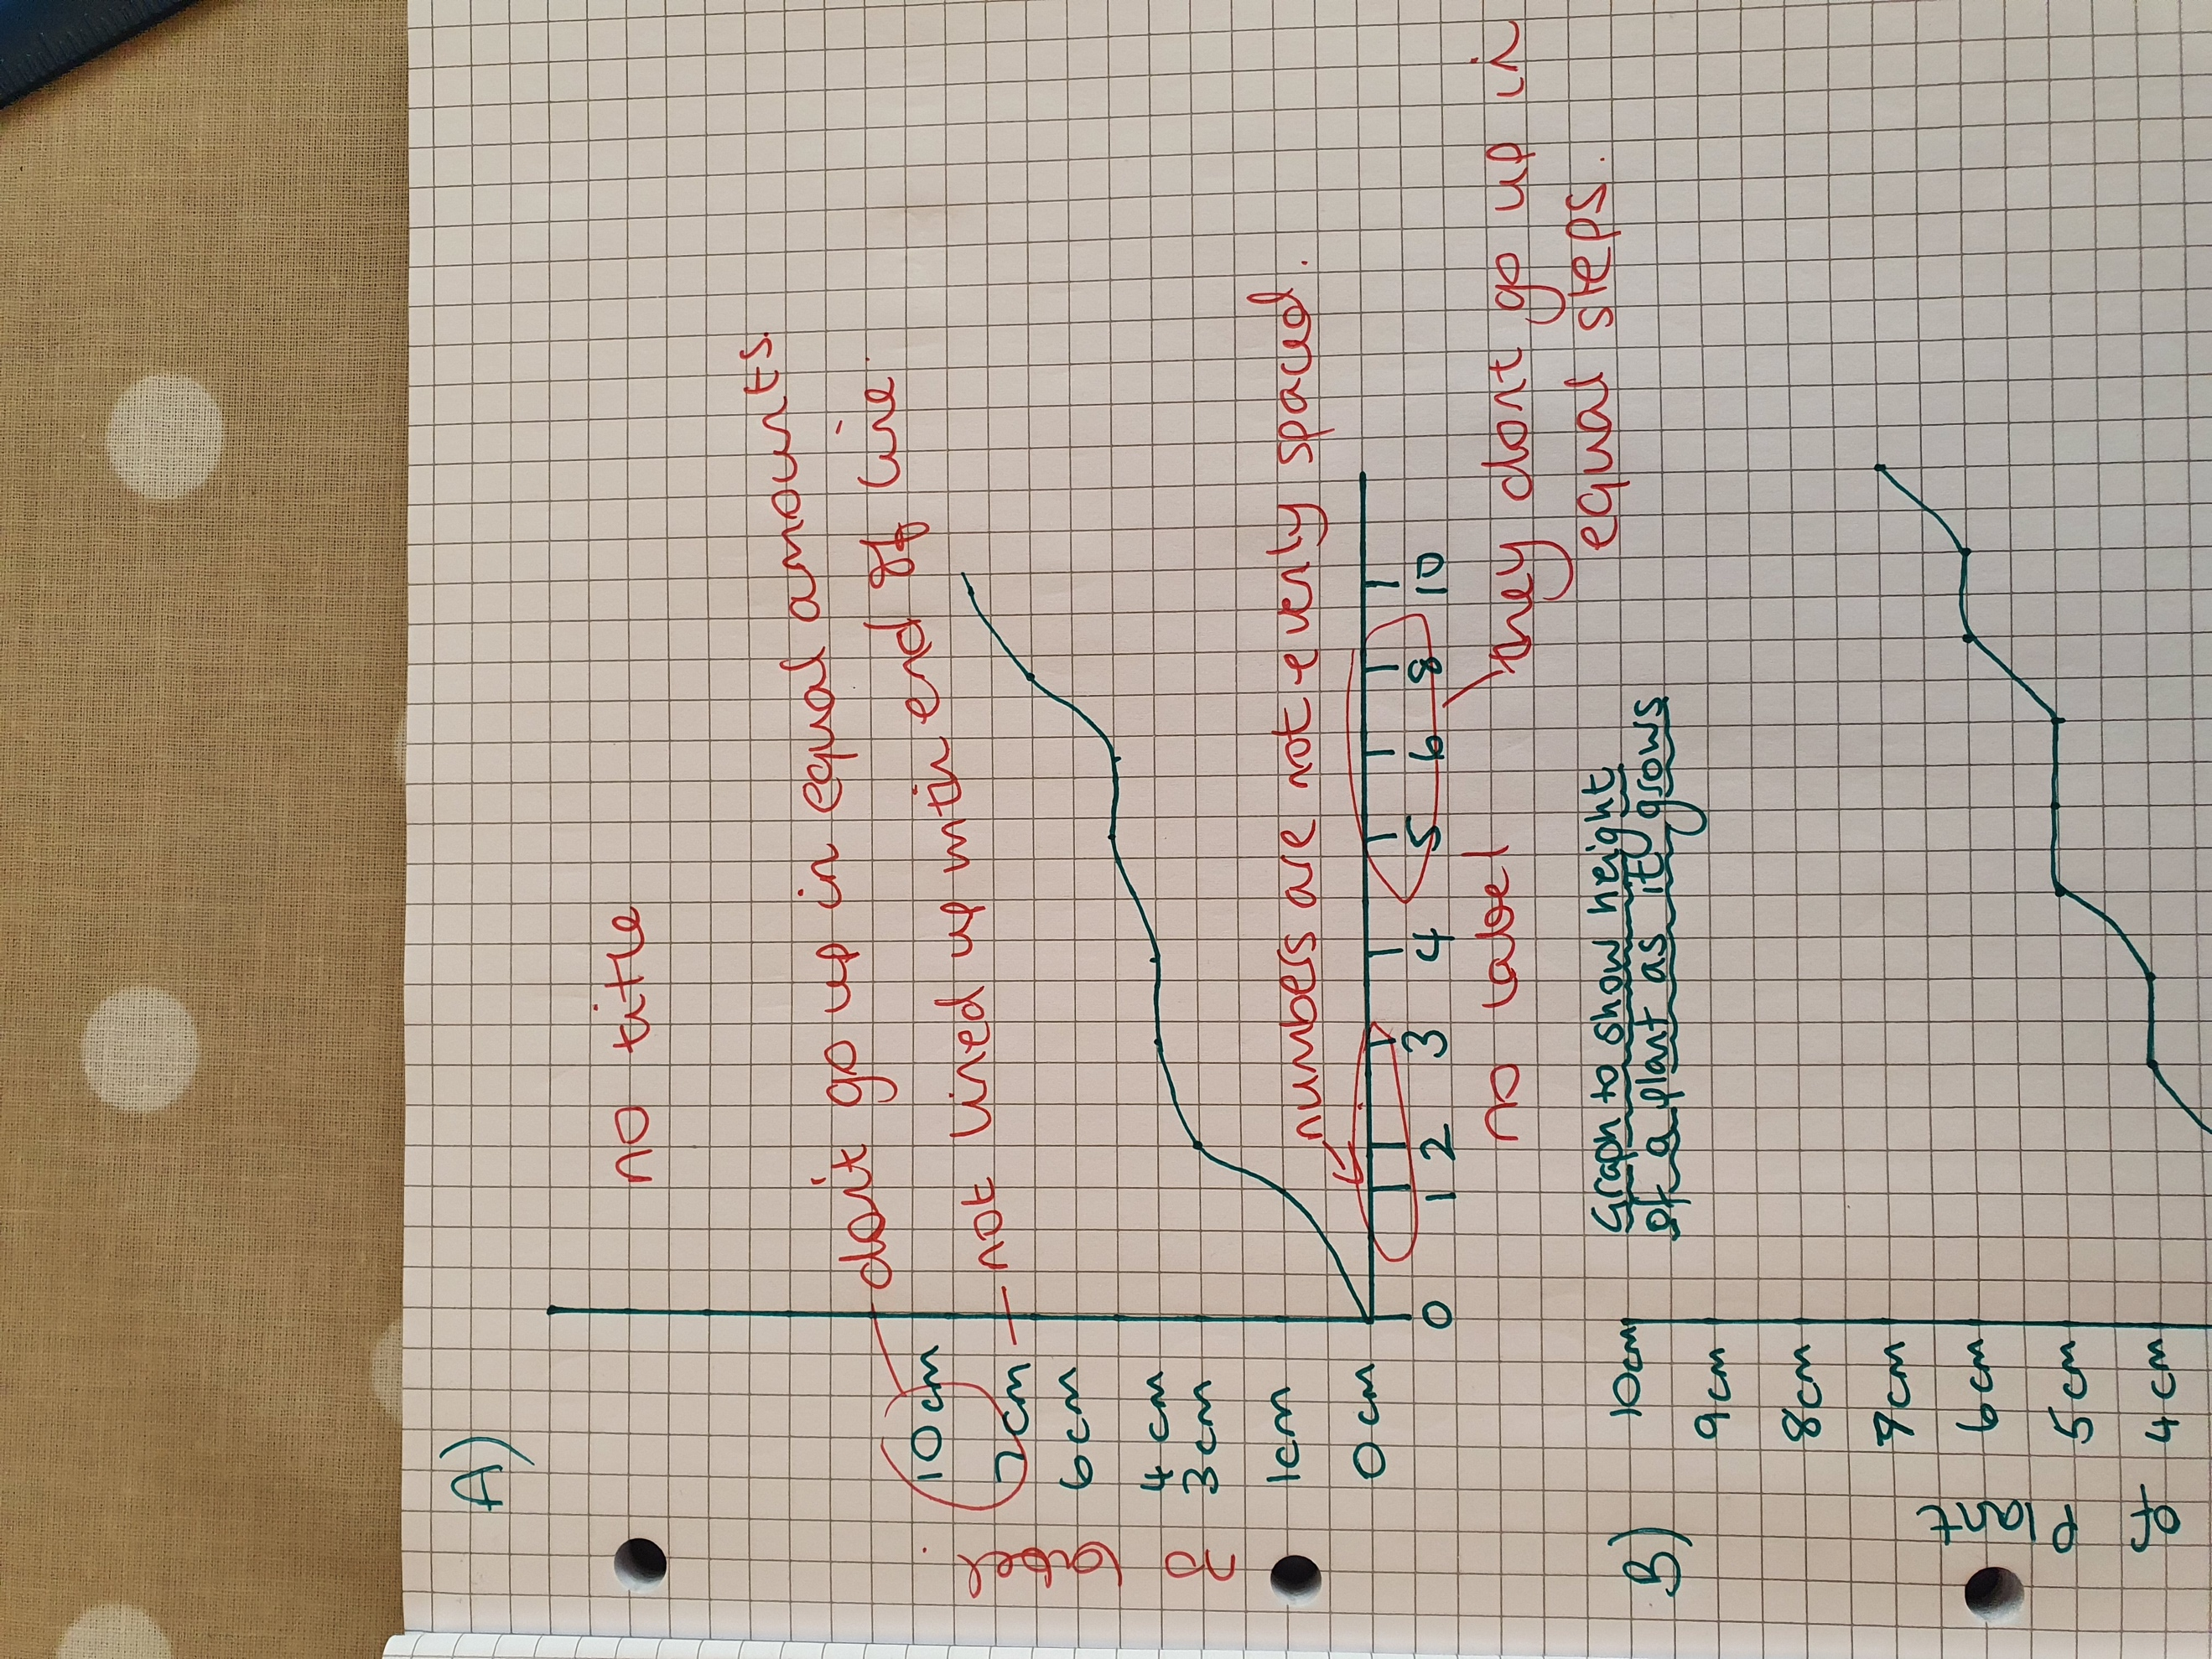 A)
no title
don't go up in equal amounts.
not lined up with end of line.
10cm
7cm
6cm
4cm
3cm
1cm
0cm
no label.
numbers are not evenly spaced.
0 1 2 3 4 5 6 8 10
no label
they dont go up in
equal steps.
B)
Graph to show height
of a plant as it grows
10cm
9cm
8cm
7cm
6cm
5cm
4cm
of
plant